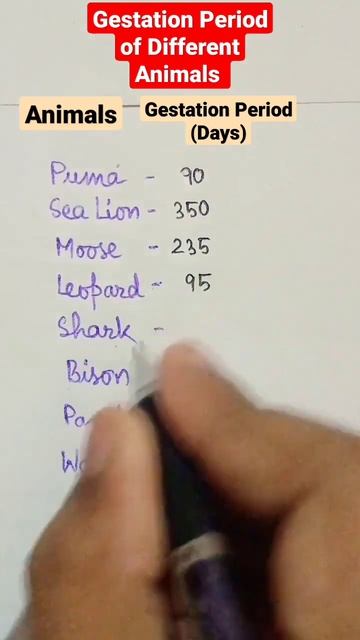 Gestation Period
of Different
Animals
Animals
Gestation Period
(Days)
Puma - 90
Sea Lion - 350
Moose - 235
Leopard - 95
Shark -
Bison